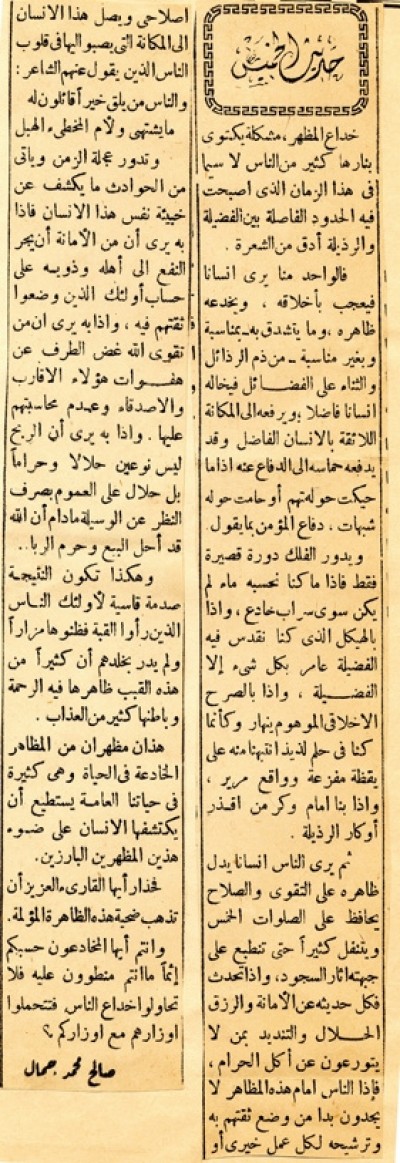 حديث الخميس
خداع المظهر، مشكلة يكتوى
بنارها كثير من الناس لا سيما
فى هذا الزمان الذى اصبحت
فيه الحدود الفاصلة بين الفضيلة
والرذيلة أدق من الشعرة .
فالواحد منا يرى انسانا
فيعجب بأخلاقه ، ويخدعه
ظاهره ، وما يتشدق به ـ بمناسبة
وبغير مناسبة ـ من ذم الرذائل
والثناء على الفضائل فيخاله
انسانا فاضلا ، ويرفعه الى المكانة
اللائقة بالانسان الفاضل وقد
يدفعه حماسه الى الدفاع عنه اذا ما
حيكت حوله تهم أو حامت حوله
شبهات ، دفاع المؤمن بما يقول .
ويدور الفلك دورة قصيرة
فقط فاذا ما كنا نحسبه ماء لم
يكن سوى سراب خادع ، واذا
بالهيكل الذى كنا نقدس فيه
الفضيلة عامر بكل شىء إلا
الفضيلة ، واذا بالصرح
الاخلاقى الموهوم ينهار وكأنما
كنا فى حلم لذيذ انتبهنا منه على
يقظة مفزعة وواقع مرير ،
واذا بنا امام وكر من اقذر
أوكار الرذيلة .
ثم يرى الناس انسانا يدل
ظاهره على التقوى والصلاح
يحافظ على الصلوات الخمس
ويتنفل كثيراً حتى تنطبع على
جبهته اثار السجود ، واذا تحدث
فكل حديثه عن الأمانة والرزق
الحلال والتنديد بمن لا
يتورعون عن أكل الحرام ،
فإذا الناس امام هذه المظاهر لا
يجدون بدا من وضع ثقتهم به
وترشيحه لكل عمل خيرى أو
اصلاحى ويصل هذا الانسان
الى المكانة التى يصبو اليها فى قلوب
الناس الذين يقول عنهم الشاعر :
والناس من يلق خيراً قائلون له
ما يشتهى ولأم المخطىء الهبل
وتدور عجلة الزمن ويأتى
من الحوادث ما يكشف عن
خبيئة نفس هذا الانسان فاذا
به يرى أن من الأمانة أن يجر
النفع الى أهله وذويه على
حساب أولئك الذين وضعوا
ثقتهم فيه ، واذا به يرى ان من
تقوى الله غض الطرف عن
هفوات هؤلاء الاقارب
والاصدقاء وعدم محاسبتهم
عليها . واذا به يرى أن الربح
ليس نوعين حلالا وحراماً
بل حلال على العموم بصرف
النظر عن الوسيلة مادام أن الله
قد أحل البيع وحرم الربا . .
وهكذا تكون النتيجة
صدمة قاسية لأولئك الناس
الذين رأوا القبة فظنوها مزاراً
ولم يدر بخلدهم أن كثيراً من
هذه القبب ظاهرها فيه الرحمة
وباطنها كثير من العذاب .
هذان مظهران من المظاهر
الخادعة فى الحياة وهى كثيرة
فى حياتنا العامة يستطيع أن
يكتشفها الانسان على ضوء
هذين المظهرين البارزين .
فحذار أيها القارىء العزيز أن
تذهب ضحية هذه الظاهرة المؤلمة .
وانتم أيها المخادعون حسبكم
إثماً ما انتم منطوون عليه فلا
تحاولوا خداع الناس فتتحملوا
اوزارهم مع اوزاركم ؟
صالح محمد جمال